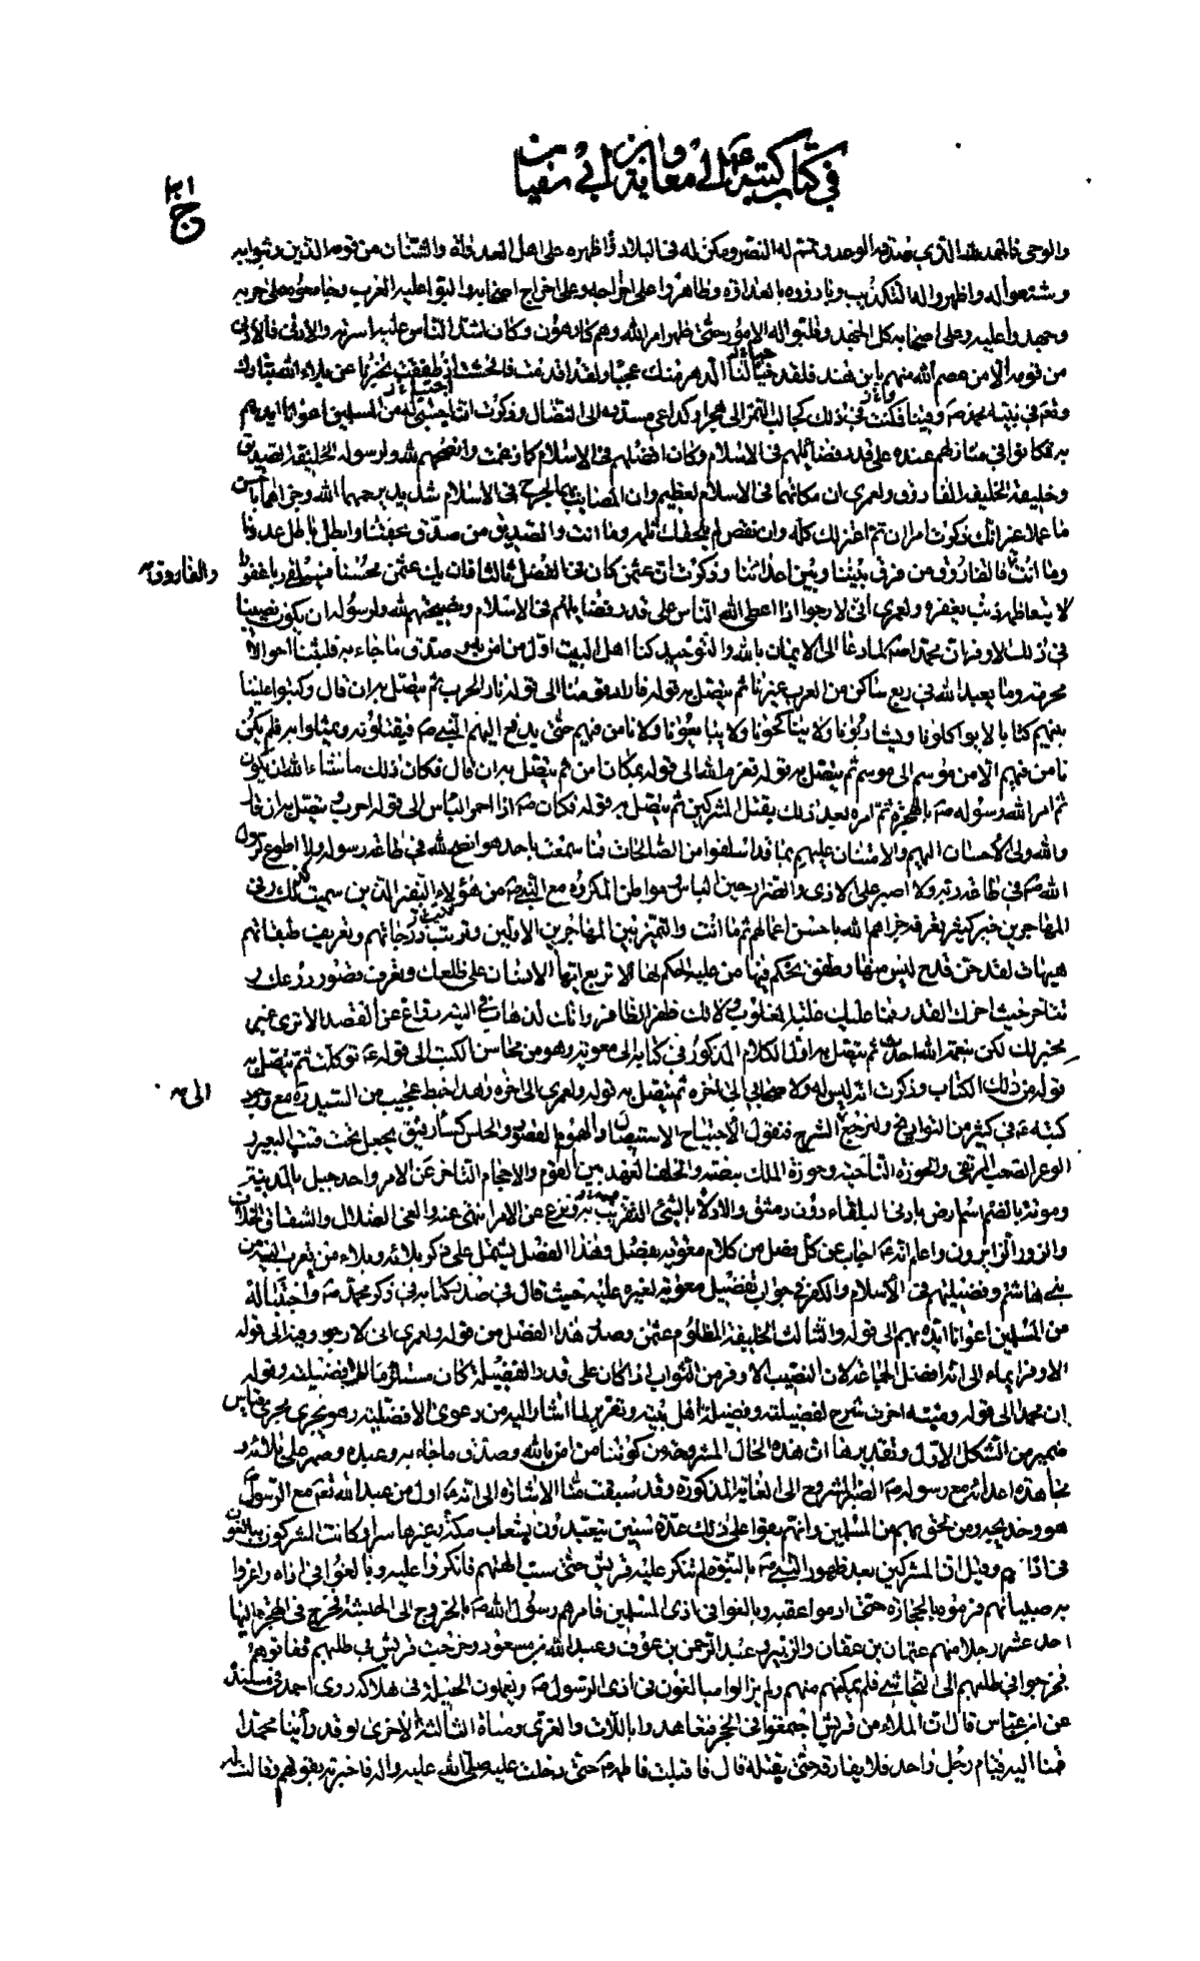 في كتاب كتبه عم الى معاوية بن ابي سفيان
ج ٣١
والوحى فالحمد لله الذي صدقه الوعد وتمم له النصر ومكن له في البلاد واظهره على اهل العداوة والشنئان من قومه الذين وثبوا به
وشنعوا له واظهروا له التكذيب وبارزوه بالعداوة وظاهروا على اخراجه وعلى اخراج اصحابه والبوا عليه العرب وجامعوه على حربه
وجهدوا عليه وعلى اصحابه كل الجهد وقلبوا له الامور حتى ظهر امر الله وهم كارهون وكان اشد الناس عليه اسرته والادنى فالادنى
من قومه الا من عصم الله منهم يا بن هند فلقد خبا لنا الدهر منك عجبا ولقد قدمت فافحشت اذ طفقت تخبرنا عن بلاء الله تبارك
وتعالى في نبيه محمد ص وفينا فكنت في ذلك كجالب التمر الى هجر او كداعي مسدده الى النضال وذكرت ان اجتبى له من المسلمين اعوانا ايده بهم
به فكانوا في منازلهم عنده على قدر فضائلهم في الاسلام وكان افضلهم في الاسلام كما زعمت وانصحهم لله ولرسوله الخليفة الصديق
وخليفة الخليفة الفاروق ولعمري ان مكانهما في الاسلام لعظيم وان المصاب بهما لجرح في الاسلام شديد يرحمهما الله وجزاهما باحسن
ما عملا غير انك ذكرت امرا ان تم اعتزلك كله وان نقص لم يلحقك ثلمه وما انت والصديق من صدق بحقنا وابطل باطل عدونا
وما انت والفاروق فالفاروق من فرق بيننا وبين اعدائنا وذكرت ان عثمن كان في الفضل ثالثا فان يك عثمن محسنا فسيلقى ربا غفورا
لا يتعاظمه ذنب يغفره ولعمري اني لارجو اذا اعطى الله الناس على قدر فضائلهم في الاسلام ونصيحتهم لله ولرسوله ان يكون نصيبنا
في ذلك الاوفر ان محمدا ص لما دعا الى الايمان بالله والتوحيد كنا اهل البيت اول من امن به وصدق ما جاء به فلبثنا احوالا
محرمة وما يعبد الله في ربع ساكن من العرب غيرنا ثم يتصل به قوله فاراد قومنا الى قوله نار الحرب ثم يتصل به ان قال وكتبوا علينا
بينهم كتابا لا يواكلونا ولا يشاربونا ولا يناكحونا ولا يبايعونا ولا نامن فيهم حتى يدفع اليهم النبي ص فيقتلونه ويمثلوا به فلم يكن
نامن فيهم الا من موسم الى موسم ثم يتصل به قوله فعزم الله الى قوله بمكان امن ثم يتصل به ان قال فكان ذلك ما شاء الله ان يكون
ثم امر الله رسوله ص بالهجرة ثم امره بعد ذلك بقتل المشركين ثم يتصل به قوله فكان ص اذا احمر الباس الى قوله اخرت ثم يتصل به ان قال
والله ولي الاحسان اليهم والامتنان عليهم بما قد اسلفوا من الصالحات فما سمعت باحد هو انصح لله في طاعة رسوله ولا اطوع لرسول
الله ص في طاعة ربه ولا اصبر على الاذى والضراء حين الباس ومواطن المكروه مع النبي ص من هؤلاء النفر الذين سميت لك وفي
المهاجرين خير كثير نعرفه جزاهم الله باحسن اعمالهم ثم ما انت والتمييز بين المهاجرين الاولين وترتيب درجاتهم وتعريف طبقاتهم
هيهات لقد حن قدح ليس منها وطفق يحكم فيها من عليه الحكم لها الا تربع ايها الانسان على ظلعك وتعرف قصور ذرعك و
تتاخر حيث اخرك القدر فما عليك غلبة المغلوب ولا لك ظفر الظافر وانك لذهاب في التيه رواغ عن القصد الا ترى غير
مخبر لك لكن بنعمة الله احدث ثم يتصل به اول الكلام المذكور في كتابه الى معوية وهو من محاسن الكتب الى قوله عم توكلت ثم يتصل به
قوله من ذلك الكتاب وذكرت انه ليس له ولاصحابي الى اخره ثم يتصل به قوله ولعمري الى اخره وهذا خبط عجيب من السيد ره مع وجود
كتبه عم في كثير من التواريخ ولنرجع الى الشرح فنقول الاجتياح الاستيصال والهموم القصود والحلس كساء رقيق يجعل تحت قتب البعير
الوعر الصعب المرتقى والحوزة الناحية وحوزة الملك بيضته والحلف العهد بين القوم والاحجام التاخر عن الامر واحد جبل بالمدينة
وموتة بالضم اسم ارض بادنى البلقاء دون دمشق والادلاء بالشئ التقرب به ونزع عن الامر انتهى عنه والغي الضلال والشقاق الخلاف
والزور الزائرون واعلم انه عم اجاب عن كل فصل من كلام معوية بفصل وهذا الفصل يشتمل على ذكر بلائه وبلاء من يقرب اليه من
بني هاشم وفضيلتهم في الاسلام والذكر في جواب تفضيل معوية لغيره عليه حيث قال في صدر كتابه في ذكر محمد ص واجتبى له
من المسلمين اعوانا ايده بهم الى قوله والثالث الخليفة المظلوم عثمن وصدر هذا الفصل من قوله ولعمري اني لارجو وفيه الى قوله
الاوفر ايماء الى انه افضل الجماعة لان النصيب الاوفر من الثواب اذا كان على قدر الفضيلة كان مستلزما للافضلية وقوله
ان محمدا الى قوله وميتة اخرت شرح لفضيلته وفضيلة اهل بيته وتقرير لما اشار اليه من دعوى الافضلية وهو يجري مجرى قياس
ضمير من الشكل الاول وتقديرها ان هذه الحال المشروحة من كوننا من امن بالله وصدق ما جاء به وعبده وصبر على بلائه و
مجاهدة اعدائه مع رسوله ص الصبر المشروع الى الغاية المذكورة وقد سبقت منا الاشارة الى انه عم اول من عبد الله تعم مع الرسول ص
هو وخديجة ومن لحق بهم من المسلمين وانهم بقوا على ذلك عدة سنين يتعبدون بشعاب مكة وغيرها سرا وكانت المشركون يبالغون
في اذاهم وقيل ان المشركين بعد ظهور النبي ص بالنبوة لم تنكر عليه قريش حتى سب الهتهم فانكروا عليه وبالغوا في اذاه واغروا
به صبيانهم فرموه بالحجارة حتى ادموا عقبه وبالغوا في اذى المسلمين فامرهم رسول الله ص بالخروج الى الحبشة فخرج في الهجرة اليها
احد عشر رجلا منهم عثمان بن عفان والزبير وعبد الرحمن بن عوف وعبد الله بن مسعود وخرجت قريش في طلبهم ففاتوهم
فخرجوا في طلبهم الى النجاشي فلم يمكنهم منهم ولم يزالوا مبالغون في اذى الرسول ص ويعملون الحيلة في هلاكه روى احمد في مسنده
عن ابن عباس قال ان الملاء من قريش اجتمعوا في الحجر فتعاهدوا باللات والعزى ومناة الثالثة الاخرى لو قد راينا محمدا
قمنا اليه قيام رجل واحد فلا يفارقه حتى يقتله قال فاقبلت فاطمة حتى دخلت عليه صلى الله عليه واله فاخبرته بقولهم وقالت له
والفاروق
الى